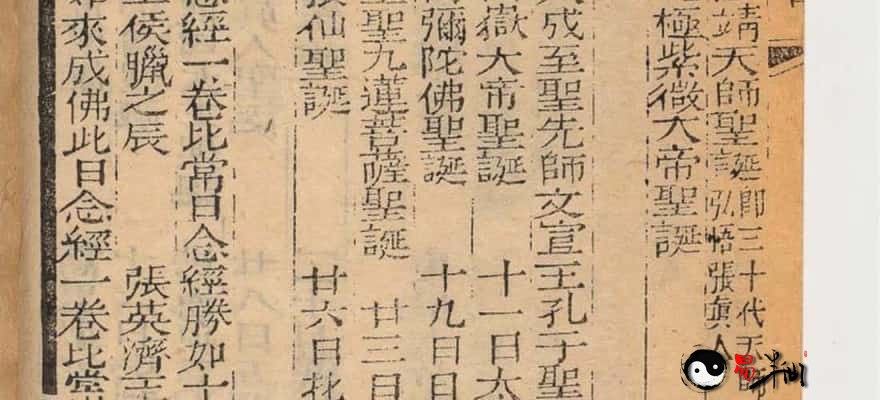 靖天師聖誕 即三十代天師
弘悟張眞人
極紫微大帝聖誕
成至聖先師文宣王孔子聖
嶽大帝聖誕 十一日太
彌陀佛聖誕 十九日日
聖九蓮菩薩聖誕 廿三日
仙聖誕 廿六日
念經一卷比常日念經勝如十
侯臘之辰 張英濟王
來成佛此日念經一卷比常